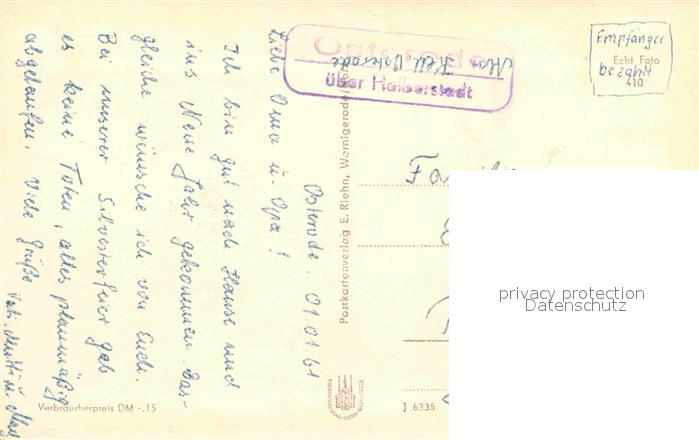 Osterode, 01.01.61
Liebe Oma u. Opa!
Ich bin gut nach Hause und
ins Neue Jahr gekommen. Das-
gleiche wünsche ich von Euch.
Bei unserer Silvesterfeier gab
es keine Toten, alles planmäßig
abgelaufen. Viele Grüße
Osterode
über Halberstadt
Empfänger
bezahlt
Echt Foto
410
Postkartenverlag E. Riehn, Wernigerode/Harz
Verbraucherpreis DM -.15
J 6335
privacy protection
Datenschutz